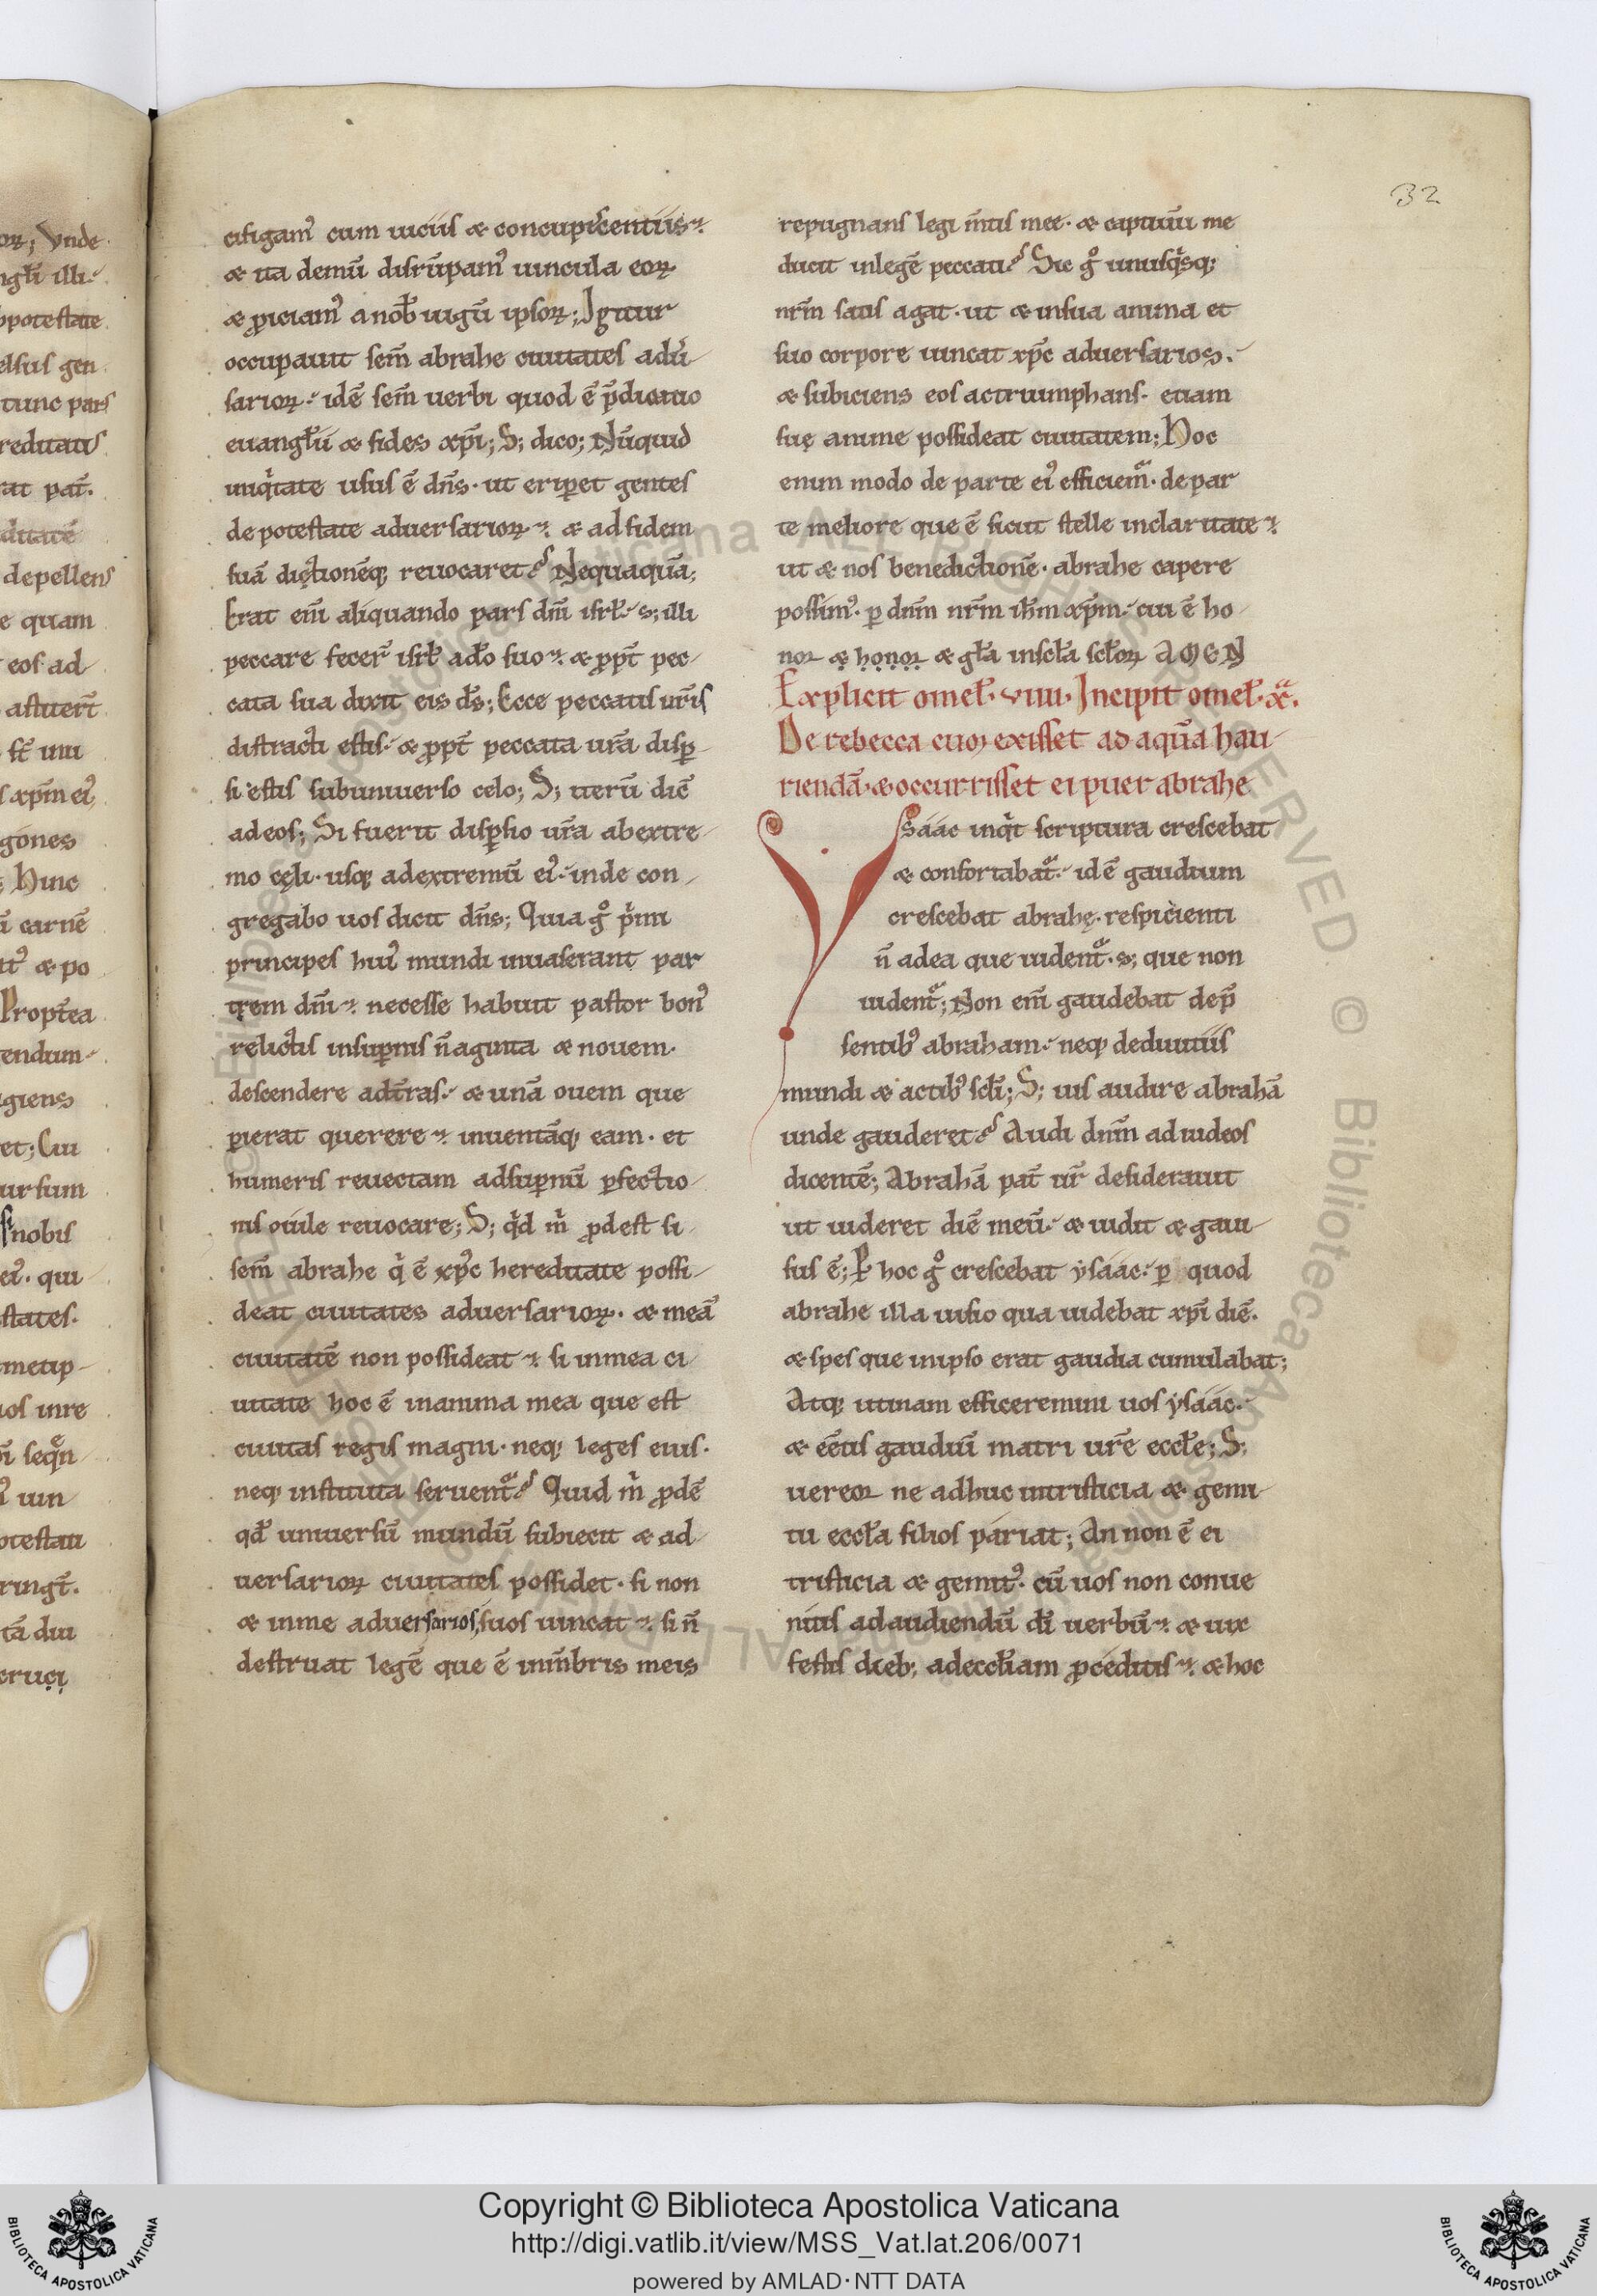 32
cifigam᷒ cum uiciis & concupiscentiis·
& ita demū disrūpam᷒ uincula eoꝝ
& ꝓiciam᷒ a nob̄ iugū ipsoꝝ; Igitur
occupauit sem̄ abrahe ciuitates adu̓
sarioꝝ· idē sem̄ uerbi quod ē p̄dicatio
euangl̄ii & fides xp̄i; S; dico; Nūquid
iniq̓tate usus ē dn̄s· ut eriꝑet gentes
de potestate aduersarioꝝ· & ad fidem
suā dictionēq; reuocaret? Nequaquā;
Erat eni̅ aliquando pars dn̄i isrl̄· s; illi
peccare fecer̄ isrl̄ a dō suo· & ꝓpt̄ pec
cata sua dixit eis ds̄; Ecce peccatis ur̄is
distracti estis· & ꝓpt̄ peccata ur̄a disꝑ
si estis sub uniuerso celo; S; iterū diē
ad eos; Si fuerit disꝑsio ur̄a ab extre
mo cęli· usq; ad extremū ei᷒· inde con
gregabo uos dicit dn̄s; Quia g̊ p̓mi
principes hui᷒ mundi inuaserant par
tem dn̄i· necesse habuit pastor bon᷒
relictis in suꝑnis n̄aginta & nouem·
descendere ad t̄ras· & unā ouem que
ꝑierat querere· inuentāq; eam· et
humeris reuectam ad suꝑnū ꝑfectio
nis ouile reuocare; S; q̓d m̓ ꝓdest si
sem̄ abrahe q̓ ē xp̄c hereditate possi
deat ciuitates aduersarioꝝ· & meā
ciuitatē non possideat· si in mea ci
uitate hoc ē in anima mea que est
ciuitas regis magni· neq; leges eius·
neq; instituta seruent̄? Quid m̓ ꝓdē
qd̄ uniuersū mundū subiecit & ad
uersarioꝝ ciuitates possidet· si non
& in me aduersarios suos uincat· si n̄
destruat legē que ē in m̄bris meis
repugnans legi m̄tis mee· & captiuū me
ducit in legē peccati? Sic g̊ unusq̓sq;
nr̄m satis agat· ut & in sua anima et
suo corpore uincat xp̄c aduersarios·
& subiciens eos ac triumphans· etiam
suę anime possideat ciuitatem; Hoc
enim modo de parte ei᷒ efficiem̄· de par
te meliore que ē sicut stelle in claritate·
ut & nos benedictionē· abrahe capere
possim᷒· ꝑ dn̄m nr̄m ih̄m xp̄m· cui ē ho
nor & honor & gl̄a in scl̄a scl̄oꝝ AMEN
Explicit omel̄· viiii· Incipit omel̄· x·
De rebecca cum exisset ad aquā hau
riendā· & occurrisset ei puer abrahe
Ysaac inq̓t scriptura crescebat
& confortabat̄· idē gaudium
crescebat abrahę· respicienti
n̄ ad ea que uident̄· s; que non
uident̄; Non eni̅ gaudebat de p̄
sentib᷒ abraham· neq; de diuitiis
mundi & actib᷒ scl̄i; S; uis audire abrahā
unde gauderet? Audi dn̄m ad iudeos
dicentē; Abrahā pat̄ ur̄ desiderauit
ut uideret diē meū· & uidit & gaui
sus ē; P̱ hoc g̊ crescebat ysaac· ꝑ quod
abrahe illa uisio qua uidebat xp̄i diē·
& spes que in ipso erat gaudia cumulabat;
Atq; utinam efficeremini uos ysaac·
& eētis gaudiū matri ur̄e eccl̄e; S;
uereor ne adhuc in tristicia & gemi
tu eccl̄a filios pariat; An non ē ei
tristicia & gemit᷒· cū uos non conue
nitis ad audiendū di̅ uerbū· & uix
festis dieb; ad eccl̄iam ꝓceditis· & hoc
Copyright © Biblioteca Apostolica Vaticana
http://digi.vatlib.it/view/MSS_Vat.lat.206/0071
powered by AMLAD·NTT DATA
BIBLIOTECA APOSTOLICA VATICANA
BIBLIOTECA APOSTOLICA VATICANA